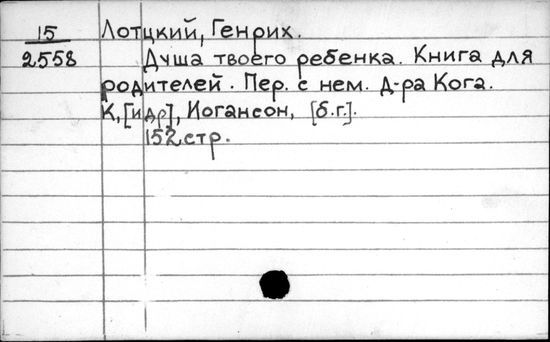 15 Лотцкий, Генрих.
2558 Душа твоего ребенка. Книга для
родителей. Пер. с нем. Д-ра Кога.
К,[и др], Иогансон, [б.г.].
152 стр.